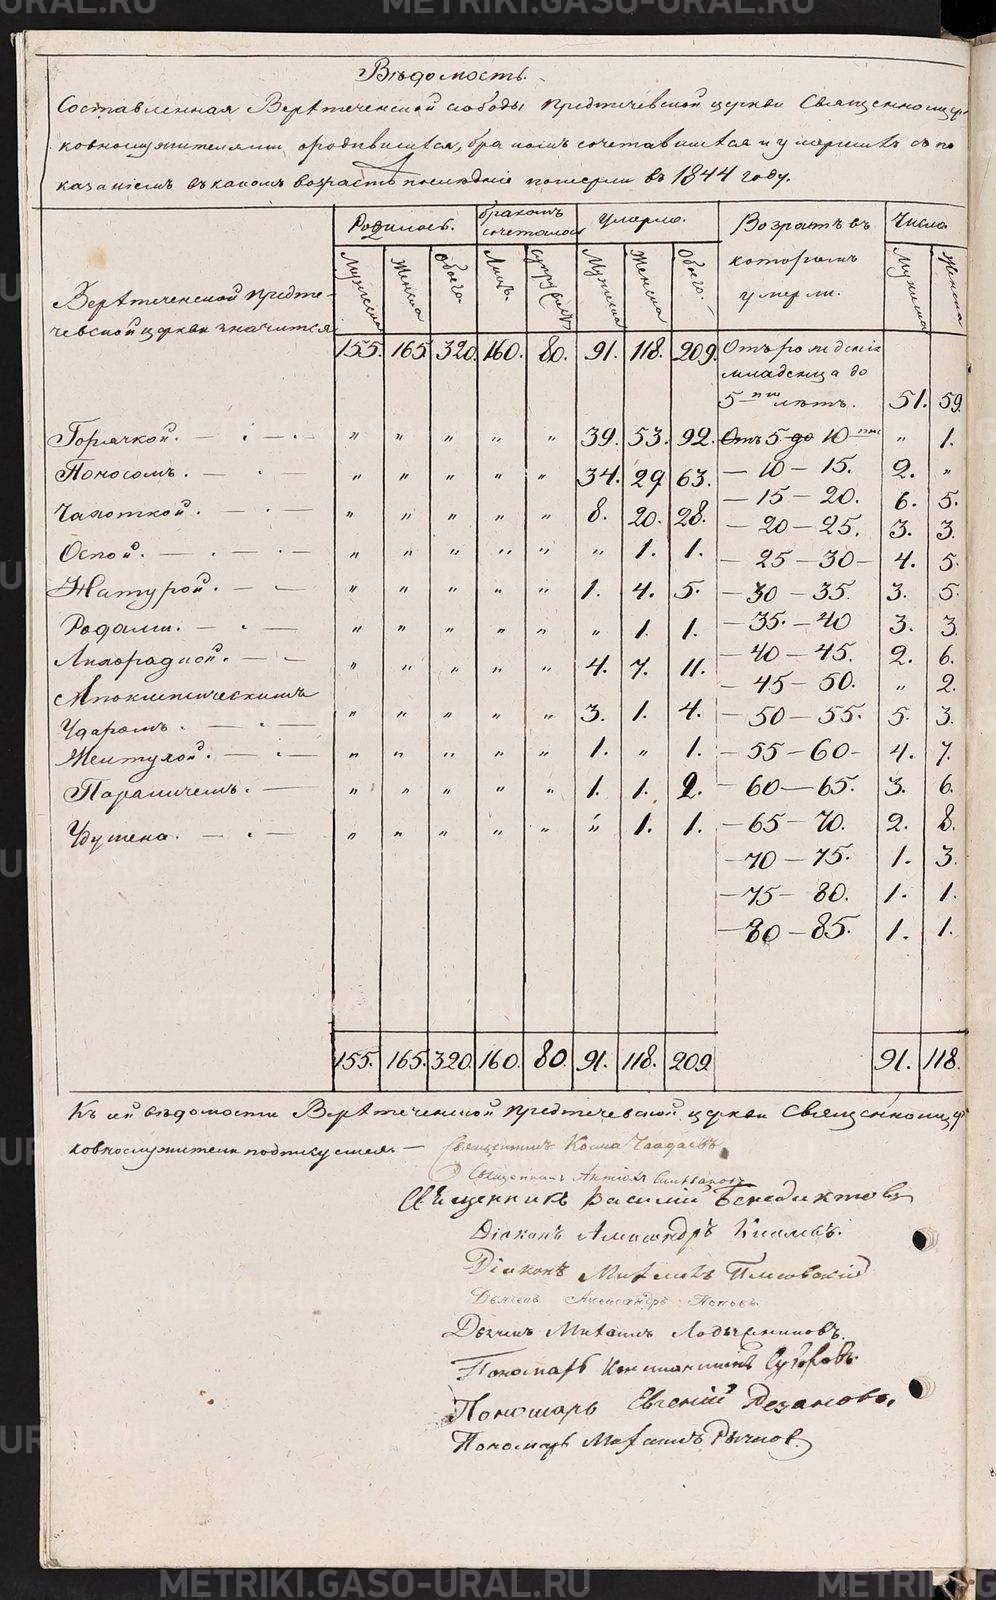 Вѣдомость.
Составленная Верхтеченской слободы Предтечевской церкви Священноцер-
ковнослужителями, о родившихся, бракомъ сочетавшихся и умершихъ съ по
казанiемъ въ какомъ возрастѣ послѣднiе померли въ 1844 году.
Родилось. бракомъ сочеталось умерло. Возрастъ въ которомъ умерли. Число
Мужеска Женска Обоего Лицъ. супружествъ Мужеска Женска Обоего. Мужеска Женска
Верхтеченской Предте-
чевской церкви значится
155. 165 320. 160. 80. 91. 118. 209. Отъ рожденiя
младенца до
5-ти лѣтъ. 51. 59.
Горячкой. — . — . — „ „ „ „ „ 39. 53. 92. Отъ 5 до 10 „ 1.
Поносомъ. — . — „ „ „ „ „ 34. 29 63. — 10 — 15. 2. „
— 15 — 20. 6. 5.
Чахоткой. — . — „ „ „ „ „ 8. 20. 28. — 20 — 25. 3. 3.
Оспой. — . — . — „ „ „ „ „ „ 1. 1. — 25 — 30 — 4. 5.
Натурой. — . — „ „ „ „ „ 1. 4. 5. — 30 — 35. 3. 5
Родами. — . — „ „ „ „ „ „ 1. 1. — 35. — 40 3. 3.
Лихорадкой. — . — „ „ „ „ „ 4. 7. 11. — 40 — 45. 2. 6.
Апоклептическимъ — 45 — 50. „ 2.
Ударомъ. — . — „ „ „ „ „ 3. 1. 4. — 50 — 55. 5. 3.
Желтухой. — . — „ „ „ „ „ 1. „ 1. — 55 — 60 — 4. 7.
Параличемъ. — „ „ „ „ „ 1. 1. 2. — 60 — 65. 3. 6.
Убушена. — . — „ „ „ „ „ „ 1. 1. — 65 — 70. 2. 8.
— 70 — 75. 1. 3.
— 75 — 80. 1. 1.
— 80 — 85. 1. 1.
155. 165. 320. 160. 80 91. 118. 209 91. 118
Къ сей вѣдомости Верхтеченской Предтечевской церкви Священноцер
ковнослужители подписуемся —
Священникъ Косма Чаадаевъ
Священникъ Антонiй
Священникъ Василiй Бенедиктовъ
Дiаконъ Александръ
Дiаконъ Михаилъ
Дьячекъ Александръ Поповъ.
Дьячекъ Михаилъ
Пономарь Константинъ Суворовъ.
Пономарь Евгенiй Резановъ.
Пономарь Михаилъ Рычков.
METRIKI.GASO-URAL.RU